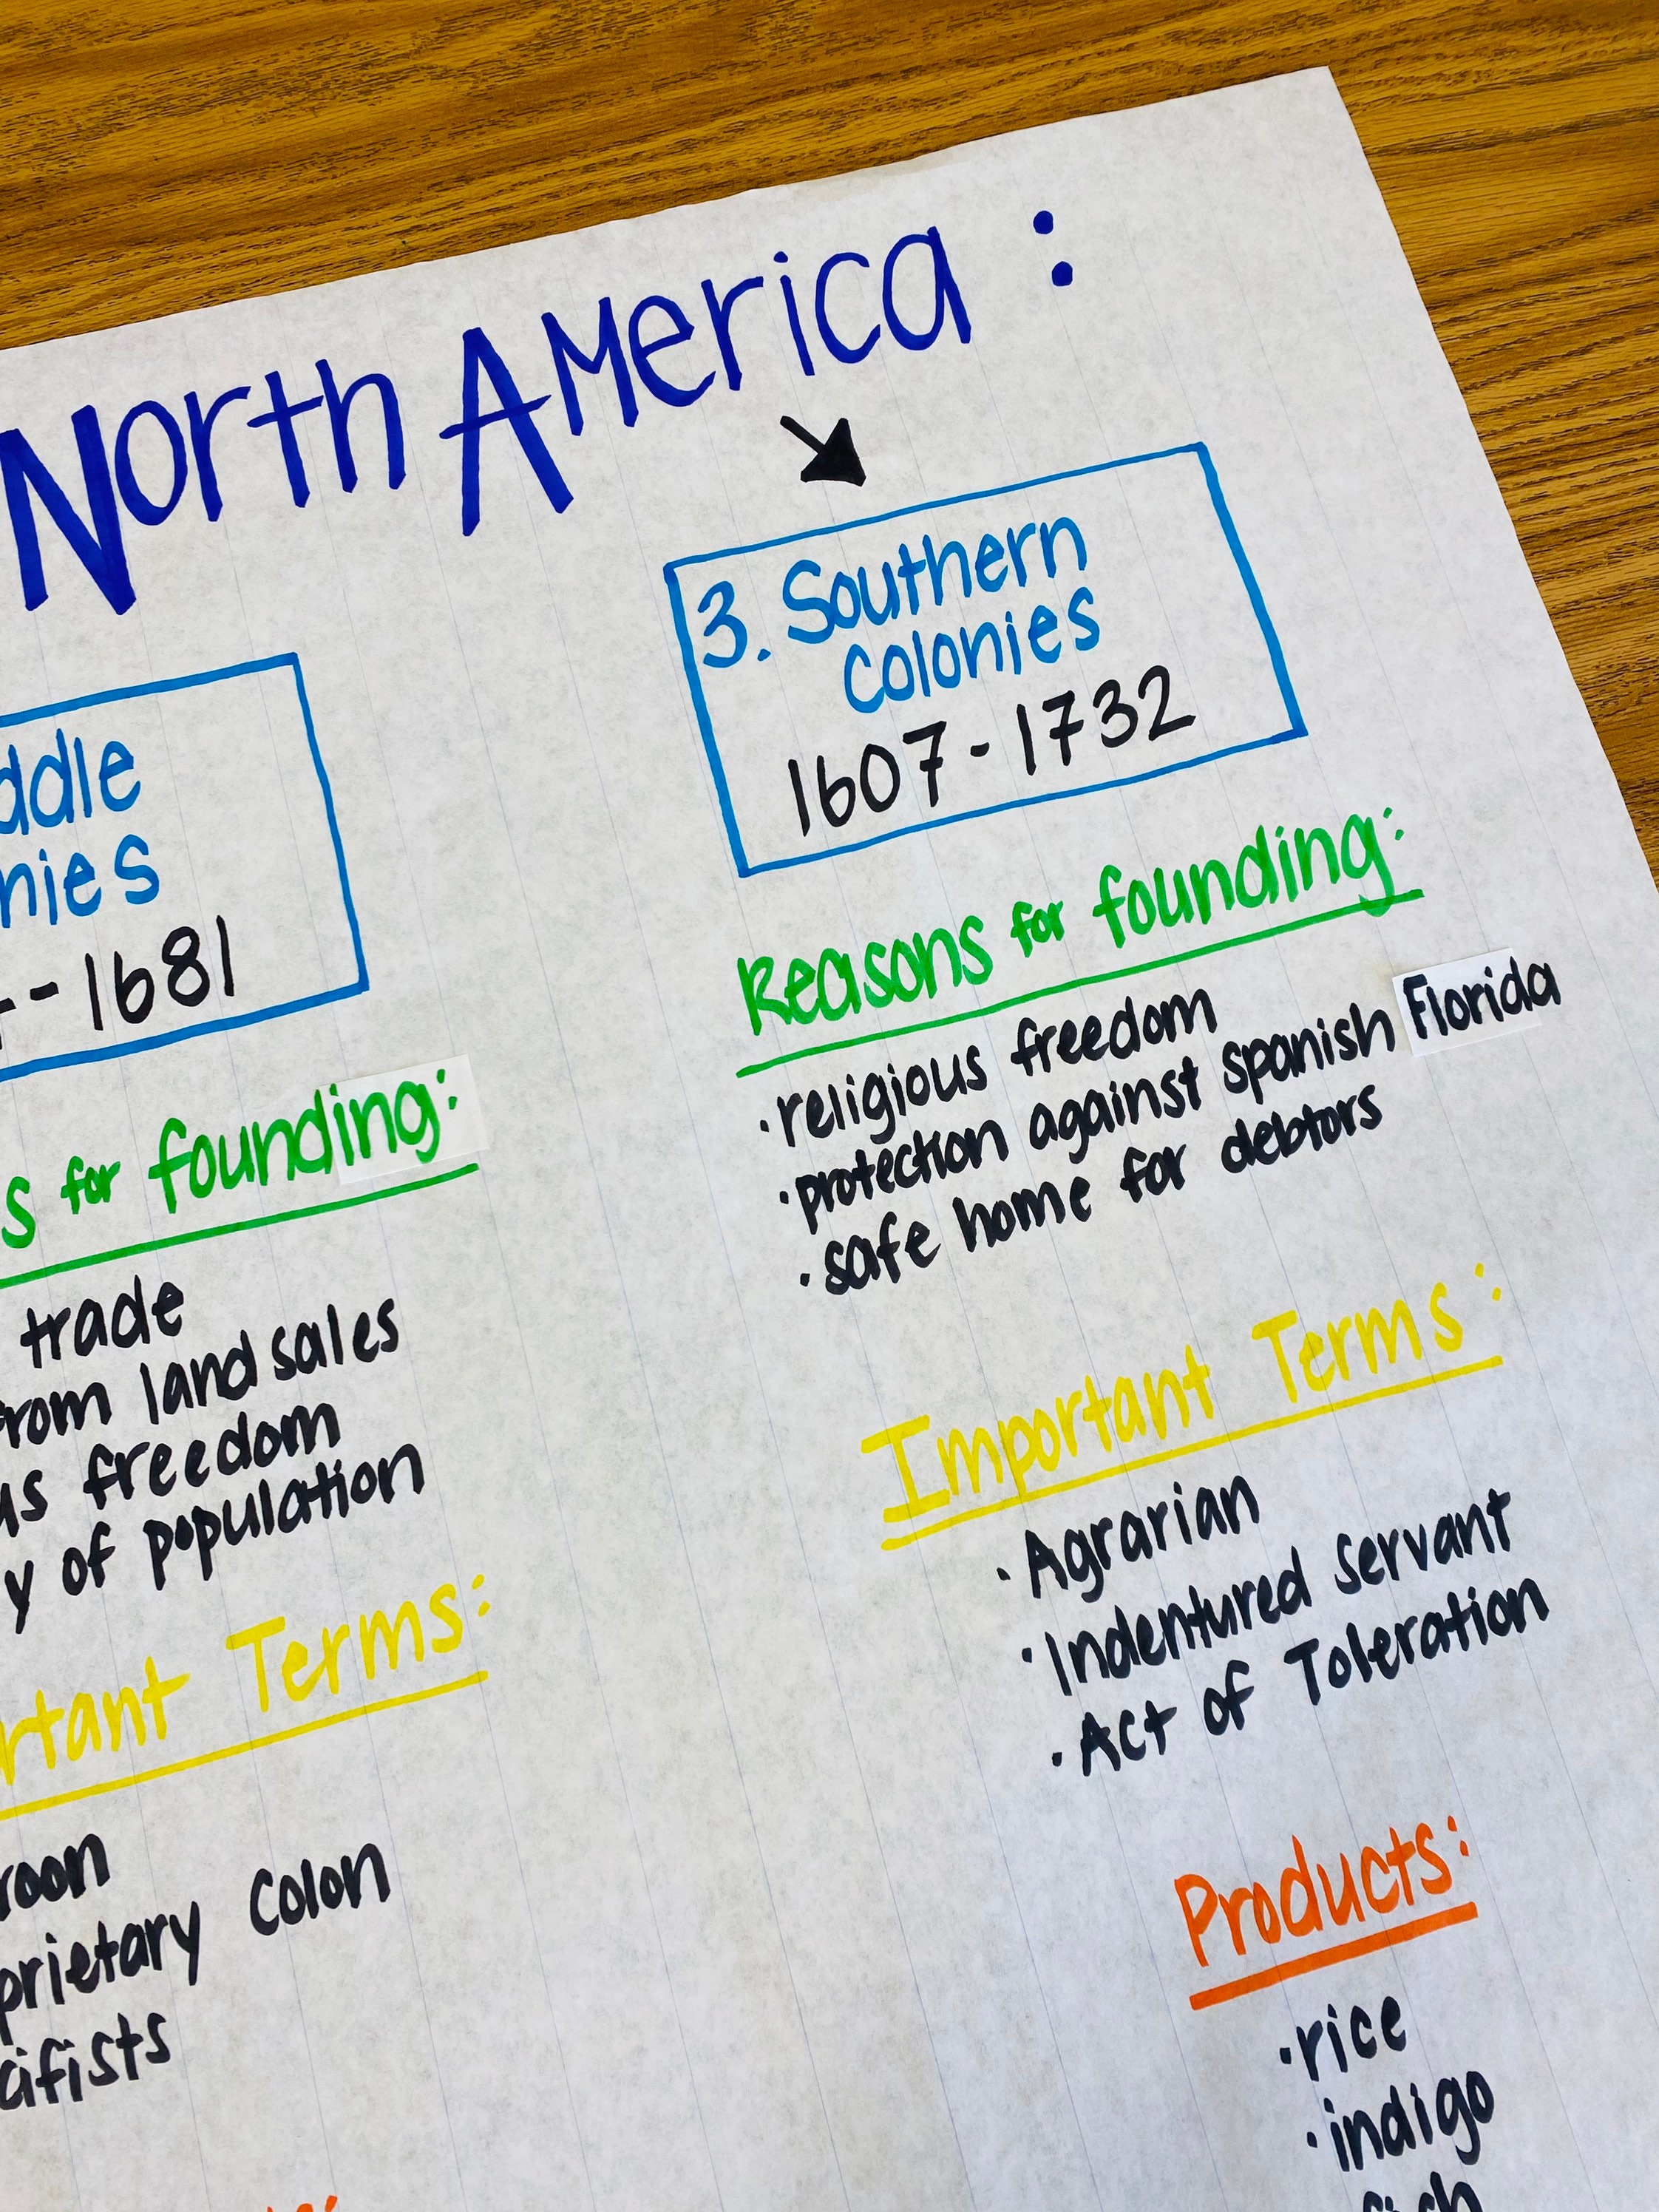 North America :
ddle
nies
--1681
s for founding:
trade
from land sales
us freedom
y of population
rtant Terms:
roon
prietary Colon
cifists
3. Southern
Colonies
1607-1732
Reasons for founding:
·religious freedom
·protection against spanish Florida
·safe home for debtors
Important Terms :
·Agrarian
·Indentured servant
·Act of Toleration
Products:
·rice
·indigo